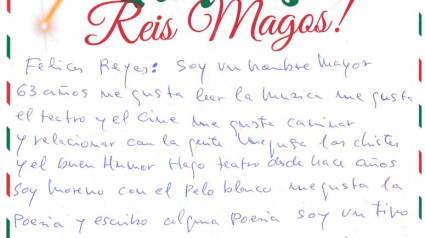 Reis Magos!
Felices Reyes: Soy un hombre Mayor
63 años me gusta leer la musica me gusta
el teatro y el Cine me gusta caminar
y relacionar con la gente me gusta los chistes
y el buen Humor Hago teatro desde hace años
Soy Moreno con el pelo blanco me gusta la
Poesia y escribo alguna Poesia soy un tipo